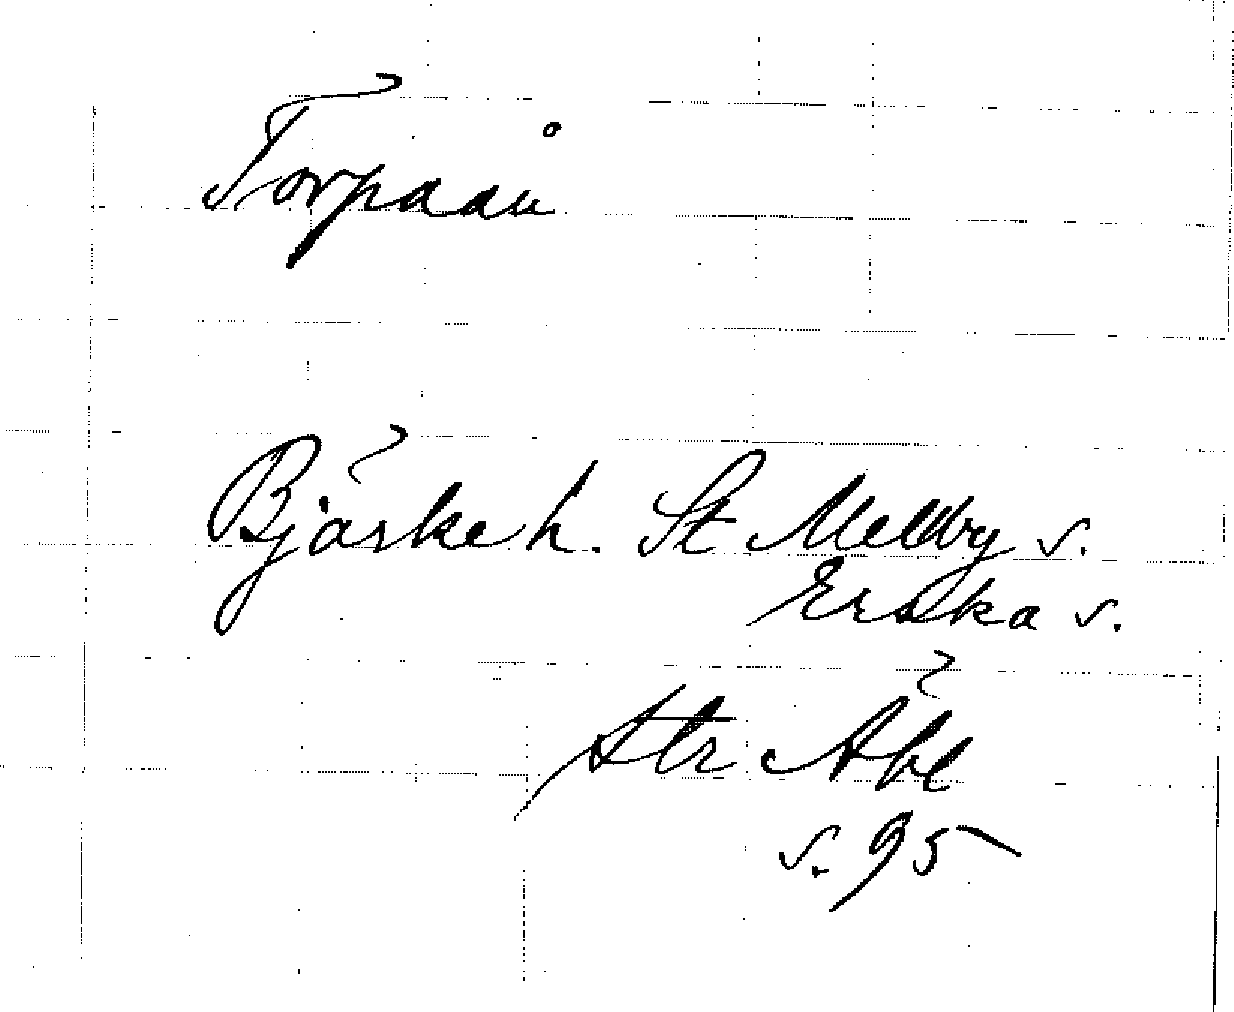 Torpaån
Bjärke h. St Mellby s.
Erska s.
str Äbl
s. 95